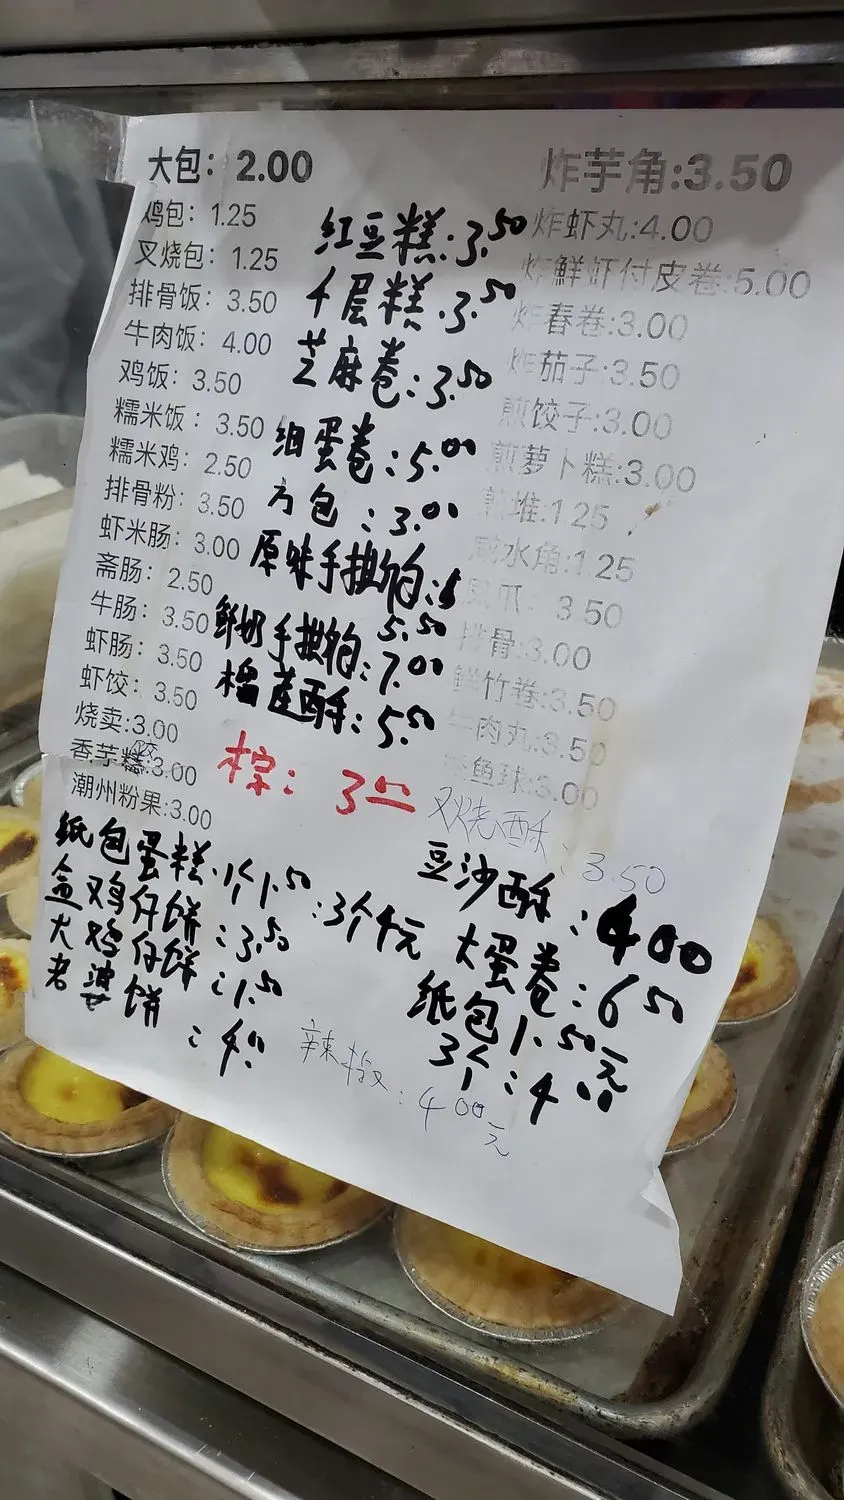 大包：2.00
鸡包：1.25
叉烧包：1.25
排骨饭：3.50
牛肉饭：4.00
鸡饭：3.50
糯米饭：3.50
糯米鸡：2.50
排骨粉：3.50
虾米肠：3.00
斋肠：2.50
牛肠：3.50
虾肠：3.50
虾饺：3.50
烧卖:3.00
香芋糕:3.00
潮州粉果:3.00
红豆糕:3.50
千层糕:3.50
芝麻卷:3.50
细蛋卷:5.00
方包:3.00
原味手撕包:
5.50
鲜奶手撕包:7.00
榴莲酥:5.50
粽:3.00
炸芋角:3.50
炸虾丸:4.00
炸鲜虾付皮卷:5.00
炸春卷:3.00
炸茄子:3.50
煎饺子:3.00
煎萝卜糕:3.00
煎堆:1.25
咸水角:1.25
凤爪：3.50
排骨:3.00
鲜竹卷:3.50
牛肉丸:3.50
鱼球:3.00
叉烧酥:3.50
豆沙酥:4.00
大蛋卷:6.50
纸包1.50元
3个:4.00
纸包蛋糕.1个1.50:3个4元
盒鸡仔饼:3.50
大鸡仔饼:1.50
老婆饼:4.00
辣椒:4.00元